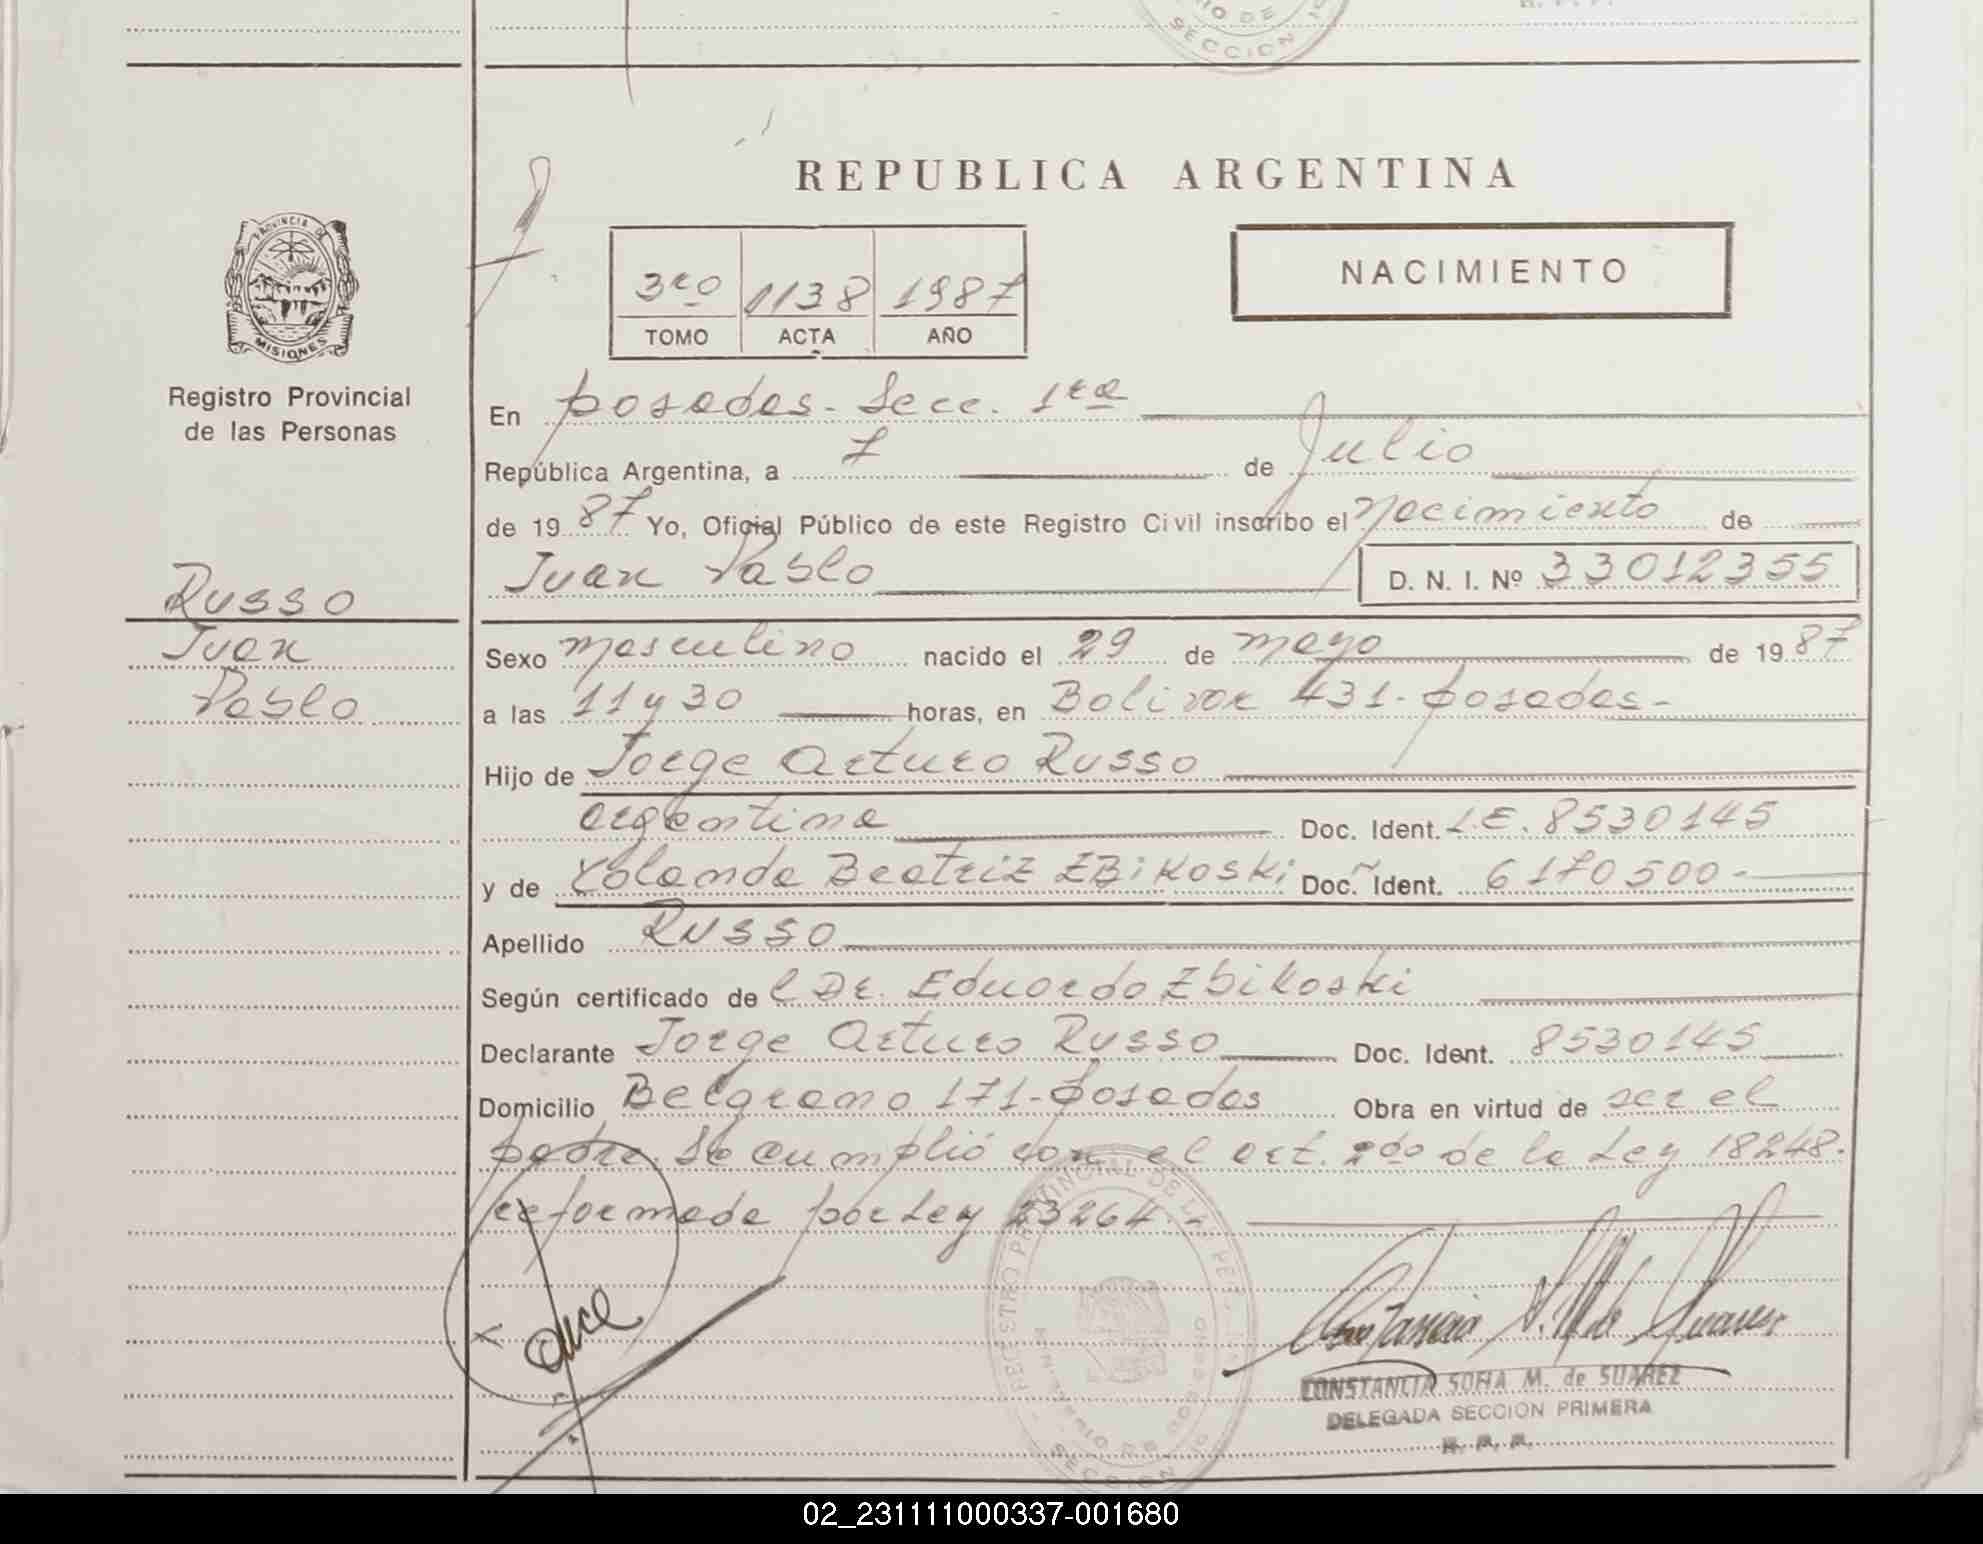 SECCION 1
REPUBLICA ARGENTINA
PROVINCIA DE
MISIONES
Registro Provincial
de las Personas
3ro 1138 1987
TOMO ACTA AÑO
NACIMIENTO
En Posadas - Secc. 1ra
República Argentina, a 7 de Julio
de 1987 Yo, Oficial Público de este Registro Civil inscribo el Nacimiento de
Juan Pablo D. N. I. Nº 33012355
Russo
Juan
Pablo
Sexo masculino nacido el 29 de mayo de 1987
a las 11 y 30 horas, en Bolivar 431 - Posadas -
Hijo de Jorge Arturo Russo
argentina Doc. Ident. L.E. 8530145
y de Yolanda Beatriz ZBiKosKi Doc. Ident. 6170500 -
Apellido Russo
Según certificado de l Dr. Eduardo Zbikoski
Declarante Jorge Arturo Russo Doc. Ident. 8530145
Domicilio Belgrano 171 - Posadas Obra en virtud de ser el
padre. Se cumplió con el art. 2do de la Ley 18248.
reformada por Ley 23264. -
REGISTRO PROVINCIAL DE LAS PER
MINISTERIO DE GOBIERNO
SECCION 1
CONSTANCIA SOFIA M. de SUAREZ
DELEGADA SECCION PRIMERA
R. P. P.
02_231111000337-001680